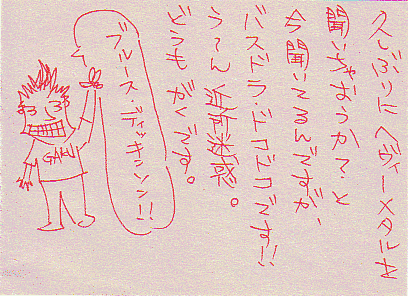 久しぶりにヘヴィーメタルを
聞いちゃおうかて?と
今聞いてるんですが、
バスドラ・ドコドコです!!
う〜ん近所迷惑。
どうもがくです。
ブルース・ディッキンソン!!
GAKU